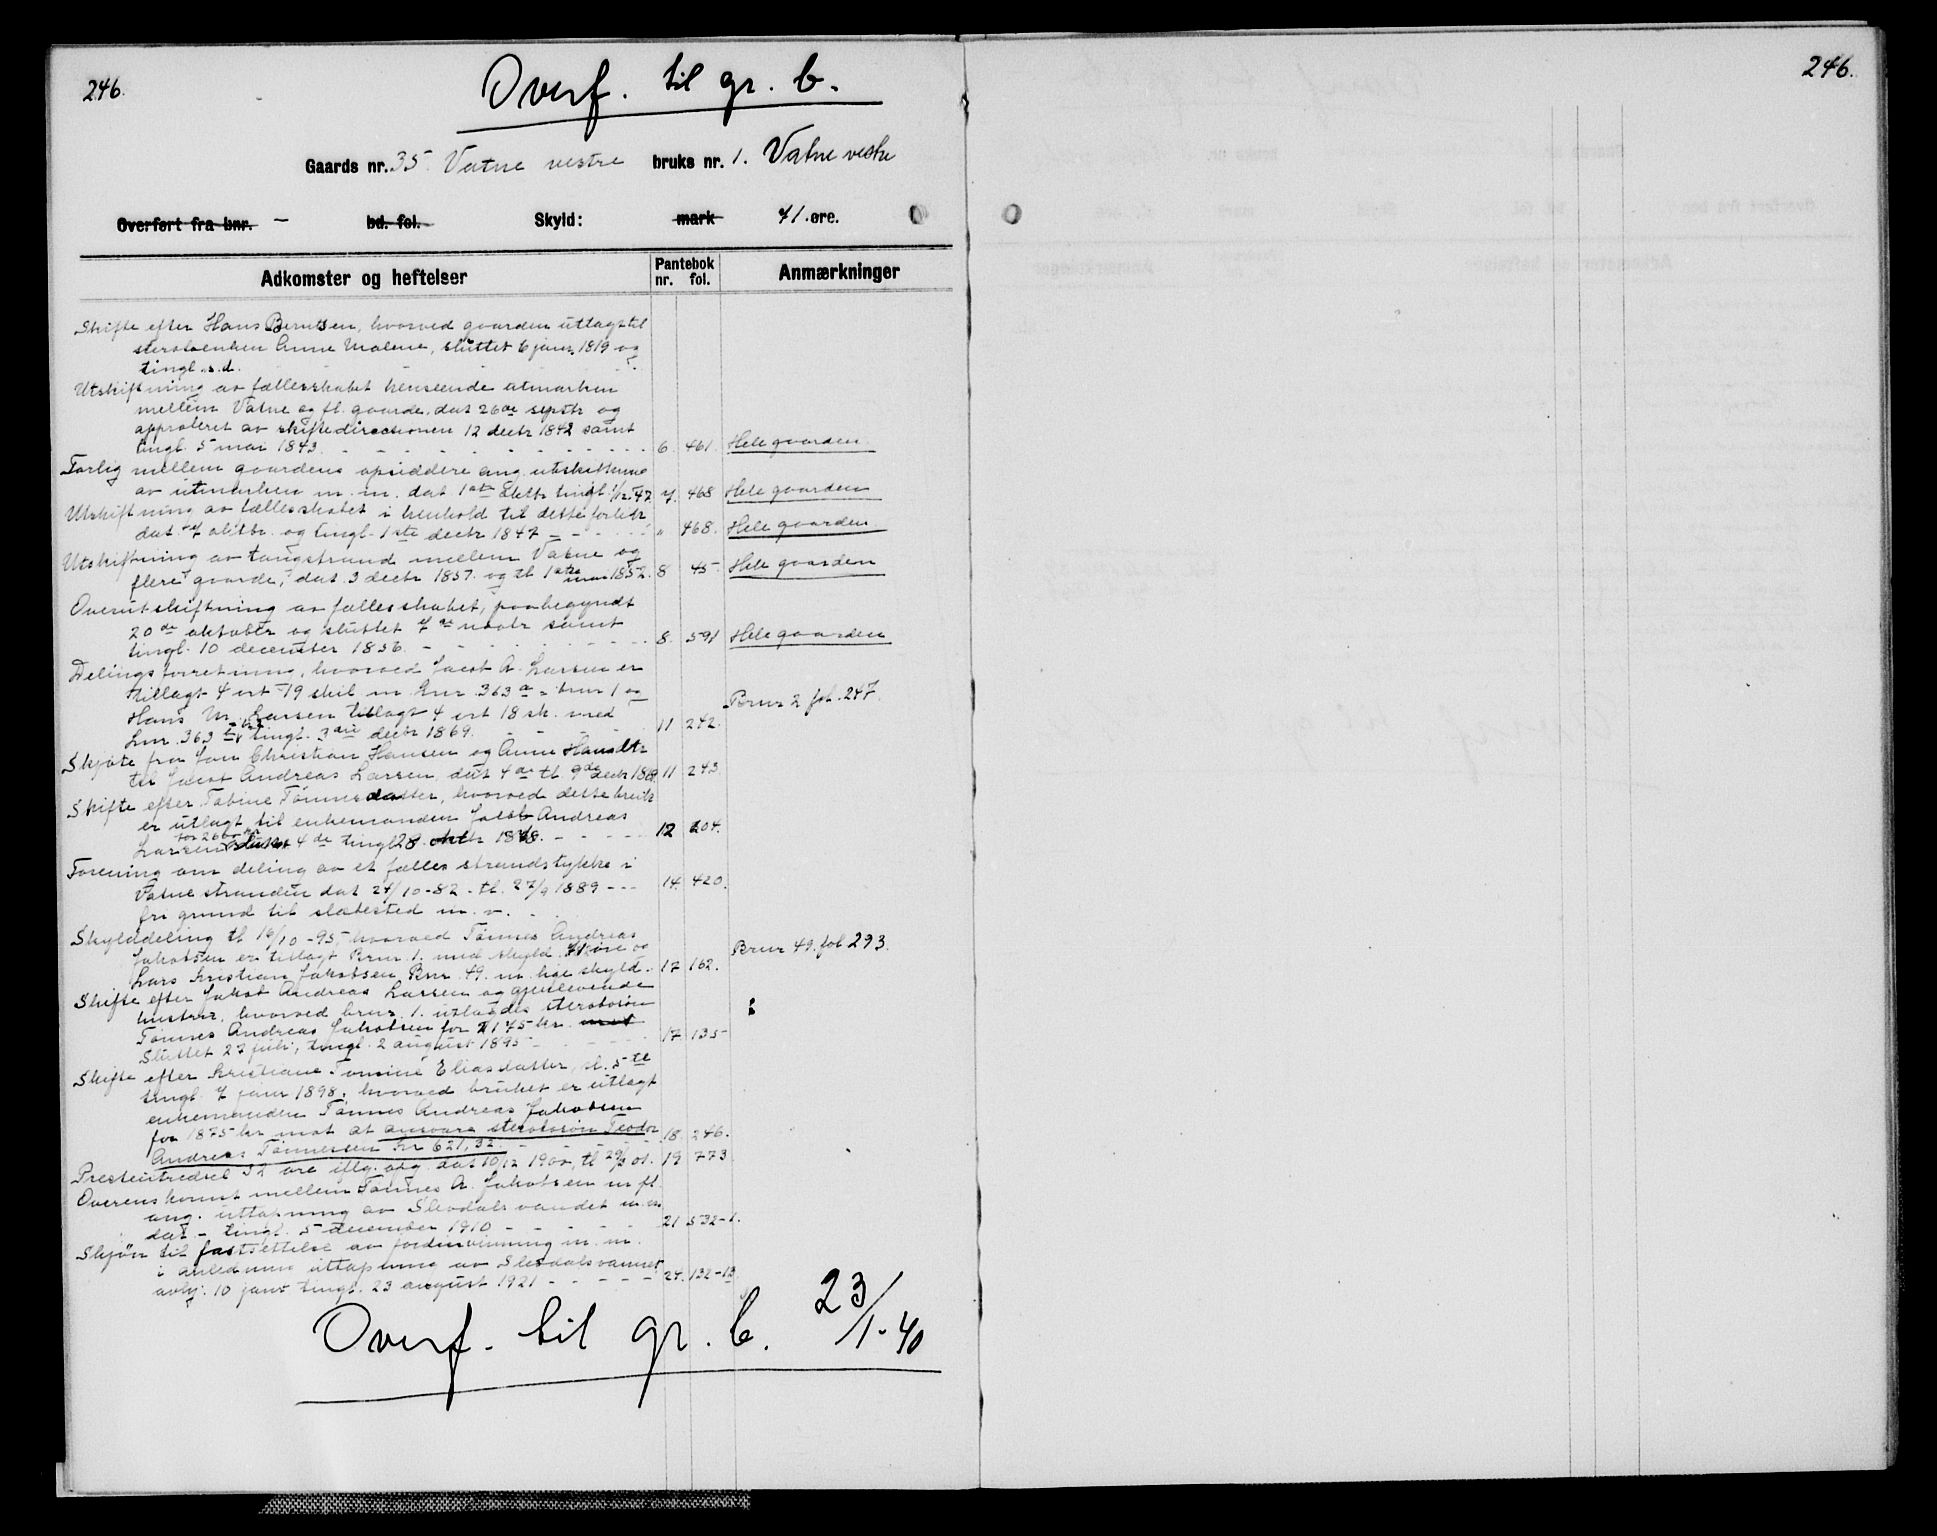 246.
Overf. til gr. b.
Gaards nr. 35. Vatne vestre bruks nr. 1. Vatne vestre
Overført fra bnr. - bd. fol. Skyld: mark 71 øre.
Adkomster og heftelser Pantebok nr. fol. Anmærkninger
Skifte efter Hans Berntsen, hvorved gaarden utlagt til
sterboenken Anne Malene, sluttet 6 janr. 1819 og
tingl. s.d.
Utskiftning av fællesskabet henseende utmarken
mellem Vatne og fl. gaarde, dat 26de septbr og
approberet av skiftedirectionen 12 decbr 1842 samt
tingl. 5 mai 1843. 6. 461. Hele gaarden.
Forlig mellem gaardens opsiddere ang. utskiftning
av utmarken m. m. dat 1ste tingl. 1/12 47 7. 468 Hele gaarden
Utskiftning av fællesskabet i henhold til dette forlik
dat 7 oktbr. og tingl. 1ste decbr 1847 " 468. Hele gaarden
Utskiftning av tangstrand mellem Vatne og
flere gaarde, dat. 3 decbr 1857. og tl 1ste mars 1852. 8 45 Hele gaarden
Overutskiftning av fællesskabet, paabegyndt
20de oktober og sluttet 7de novbr samt
tingl. 10 december 1856. 8. 591 Hele gaarden
Delingsforretning, hvorved Jacob A. Larsen er
tillagt 4 ort 19 skil m. Lnr 363a = bnr 1 og
Hans M. Larsen tillagt 4 ort 18 sk. med Brnr 2 fol. 247.
Lnr. 363 b tingl. 3die decbr 1869. 11 242.
Skjøte fra Jon Christian Hansen og Anne Hansdtr
til Jacob Andreas Larsen, dat 4de tl. 9de decbr 1869 11 243.
Skifte efter Tabine Tønnesdatter, hvorved dette bruk
er utlagt til enkemanden Jakob Andreas
Larsen for 2600 sluttet 4de tingl 28 oktbr 1878. 12 204.
Forening om deling av et fælles strandstykke i
Vatne stranden dat 24/10-82 - tl. 27/9 1889 14. 420.
fri grund til støbested m. v.
Skylddeling tl 16/10-95, hvorved Tønnes Andreas
Jakobsen er tillagt Brnr. 1. med skyld 71 øre og Brnr 49. fol 293.
Lars Kristian Jakobsen Bnr. 49. m. lige skyld. 17 162.
Skifte efter Jakob Andreas Larsen og gjenlevende
hustru, hvorved brnr. 1. utlagdes sterbosøn
Tønnes Andreas Jakobsen for 2175 kr.
Sluttet 27 juli, tingl. 2 august 1895 17 135
Skifte efter Kristiane Tomine Eliasdatter, sl. 5te
tingl. 7 janr 1898, hvorved bruket er utlagt
enkemanden Tønnes Andreas Jakobsen
for 1875 kr mot at ansvare sterbosøn Teodor 18. 246.
Andreas Tønnessen kr 621,32.
Presteintredsel 32 øre iflg. opg. dat 10/12 1900, tl 29/3 01. 19 773
Overenskomst mellem Tønnes A. Jakobsen m fl.
ang. uttapning av Slevdalsvandet m.m
dat - tingl. 5 december 1910 21 532-1.
Skjøn til fastsettelse av jordindvinning m. m.
i anledning uttapning av Slevdalsvannet
avhj. 10 janr tingl. 23 august 1921 24. 132-13.
Overf. til gr. b. 23/1-40
246.